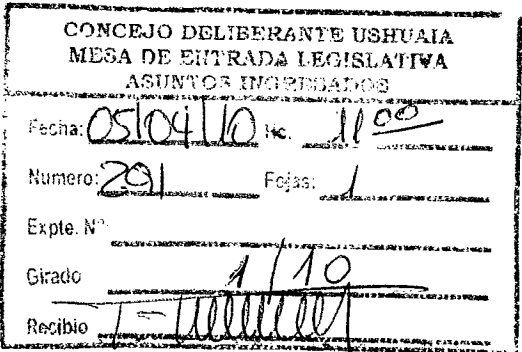 CONCEJO DELIBERANTE USHUAIA
MESA DE ENTRADA LEGISLATIVA
ASUNTOS INGRESADOS
Fecha: 05/04/10 Hs. 11 00
Numero: 291 Fojas: 1
Expte. N°
Girado 1/10
Recibio